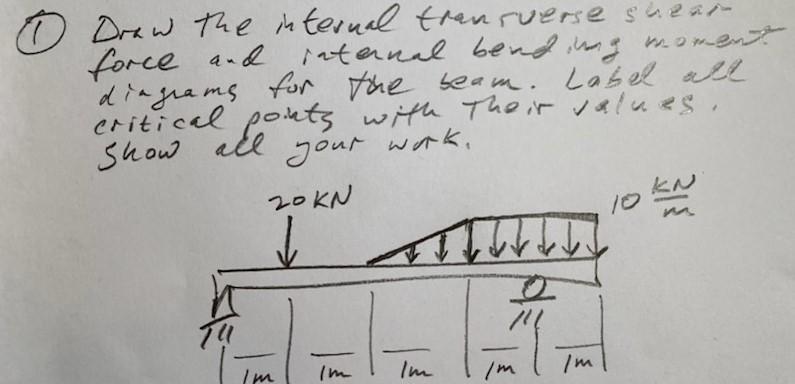 ① Draw the internal transverse shear
force and internal bending moment
diagrams for the beam. Label all
critical points with their values.
Show all your work.
20 KN
10 KN/m
1m 1m 1m 1m 1m